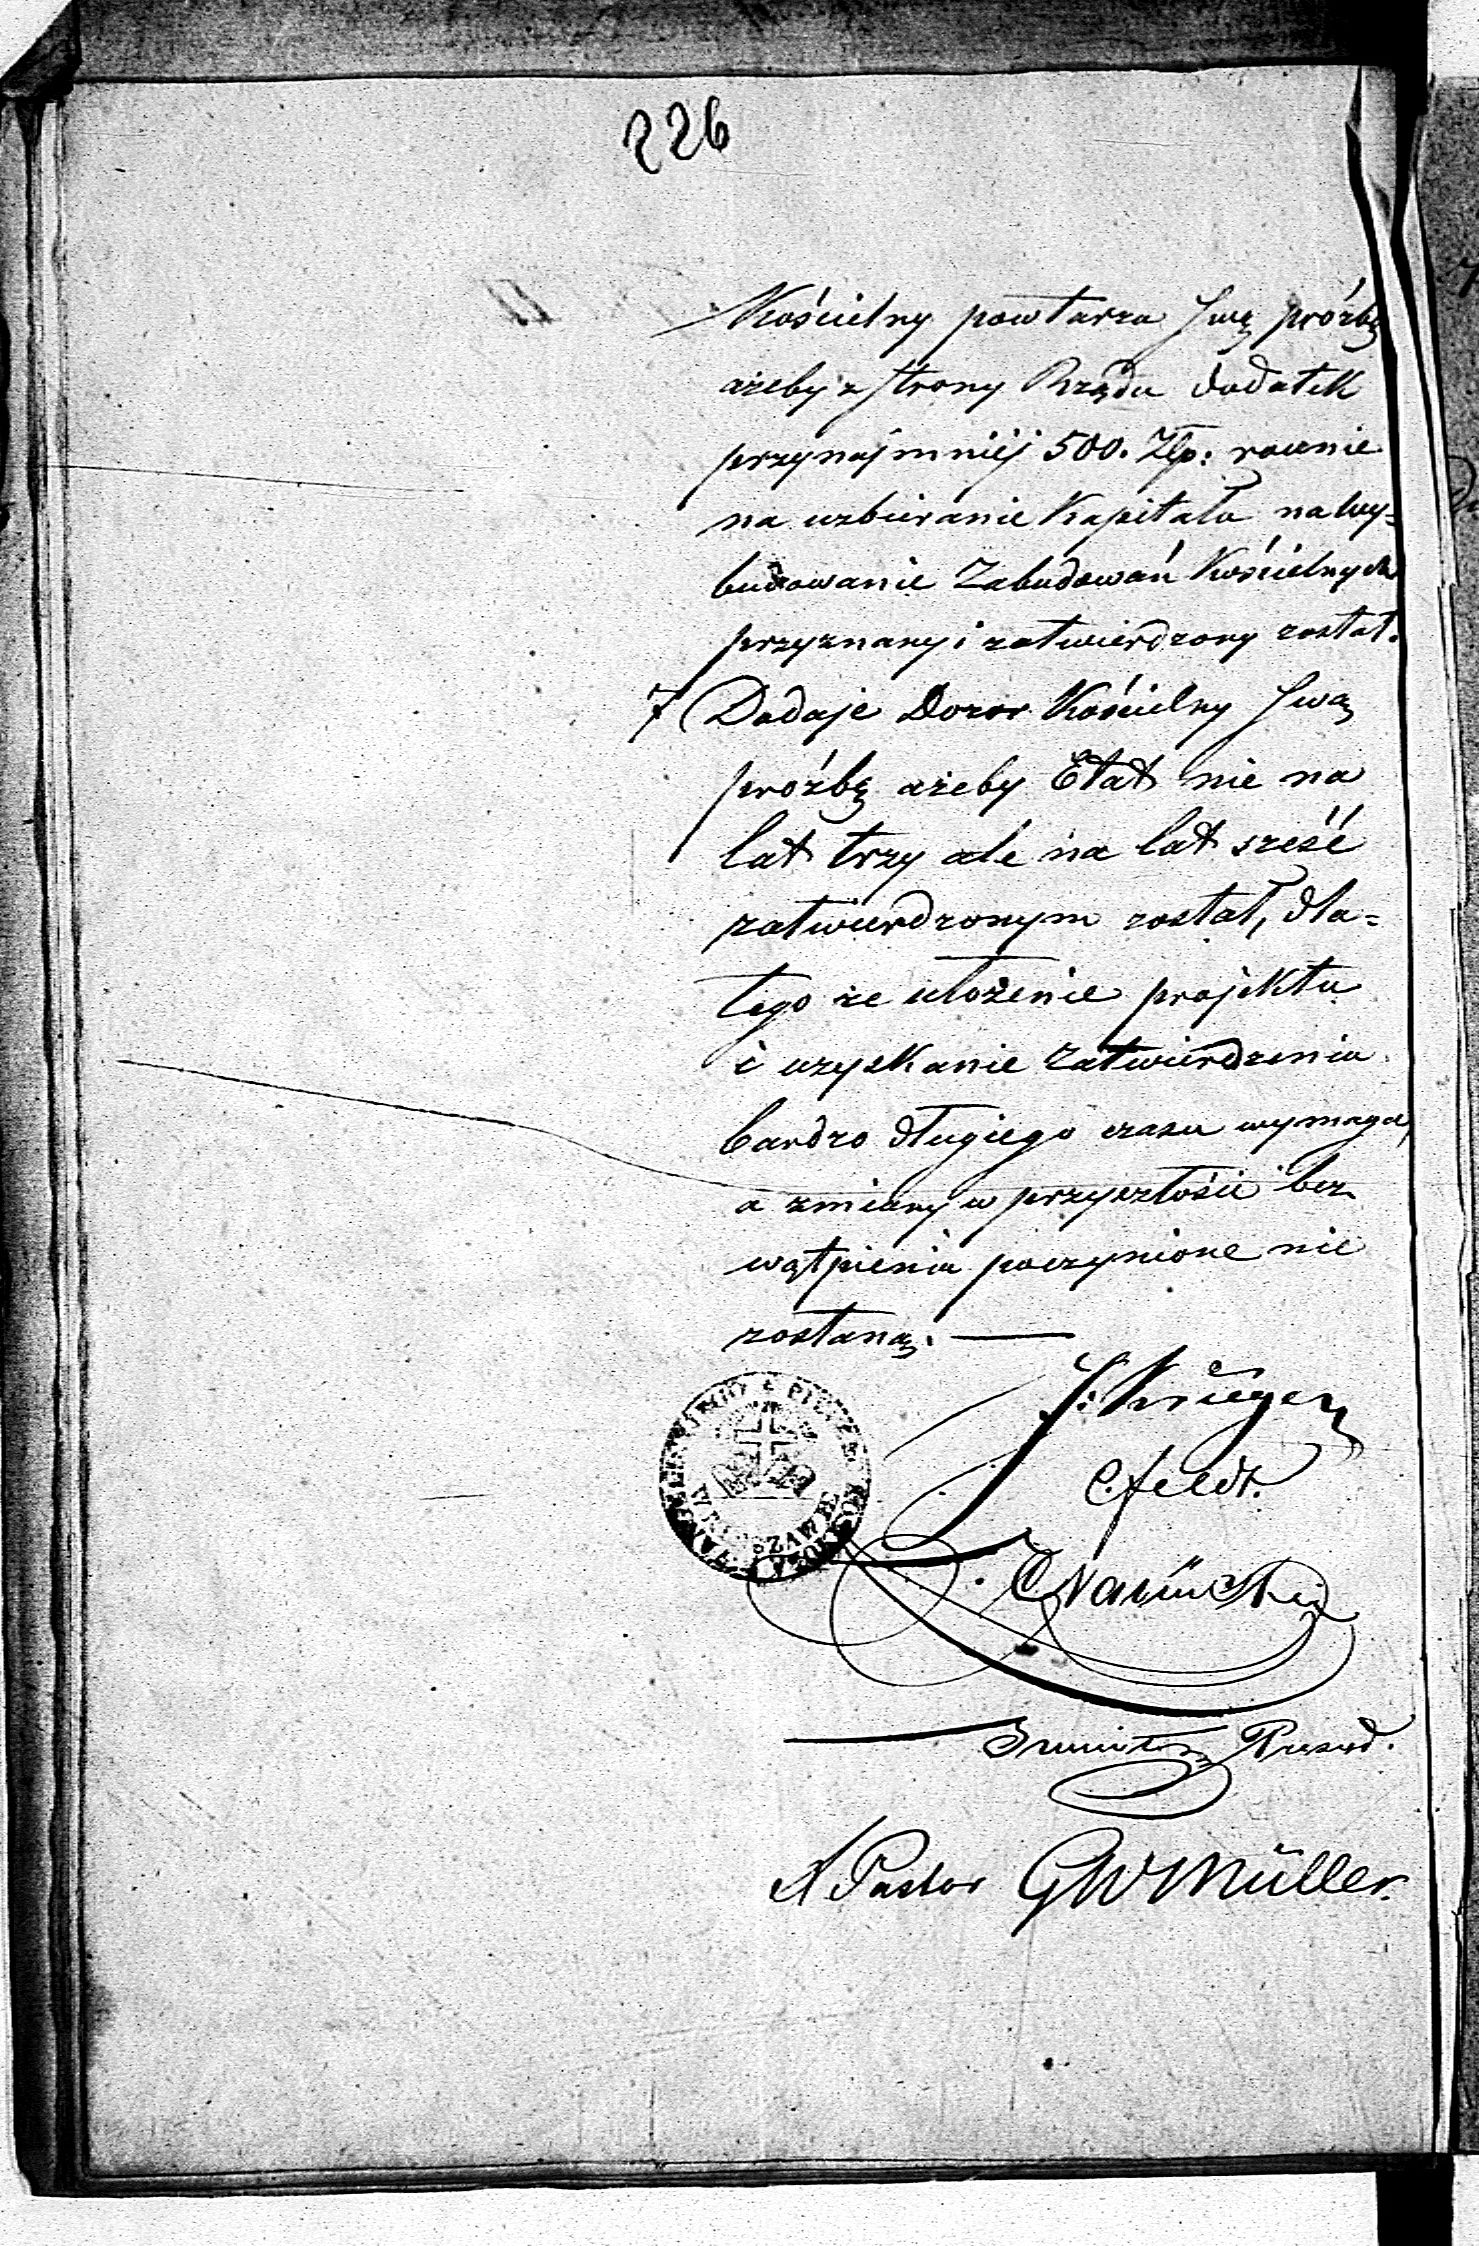 226
Kościelny powtarza swą próźbę
ażeby z strony Rządu dodatek
przynajmniéj 500. Złp: rocznie
na uzbieranie Kapitału na wy=
budowanie Zabudowań Kościelnych
przyznany i zatwierdzony został.
7 Dodaje Dozor Kościelny swą
proźbę ażeby Etat nie na
lat trzy ale na lat sześć
zatwierdzonym został, dla=
tego że ułożenie projektu
i uzyskanie zatwierdzenia
bardzo długiego czasu wymaga,
a zmiany w przyszłości bez
wątpienia poczynione nie
zostaną.
Krüger
C. Feldt.
Pastor GWMüller.